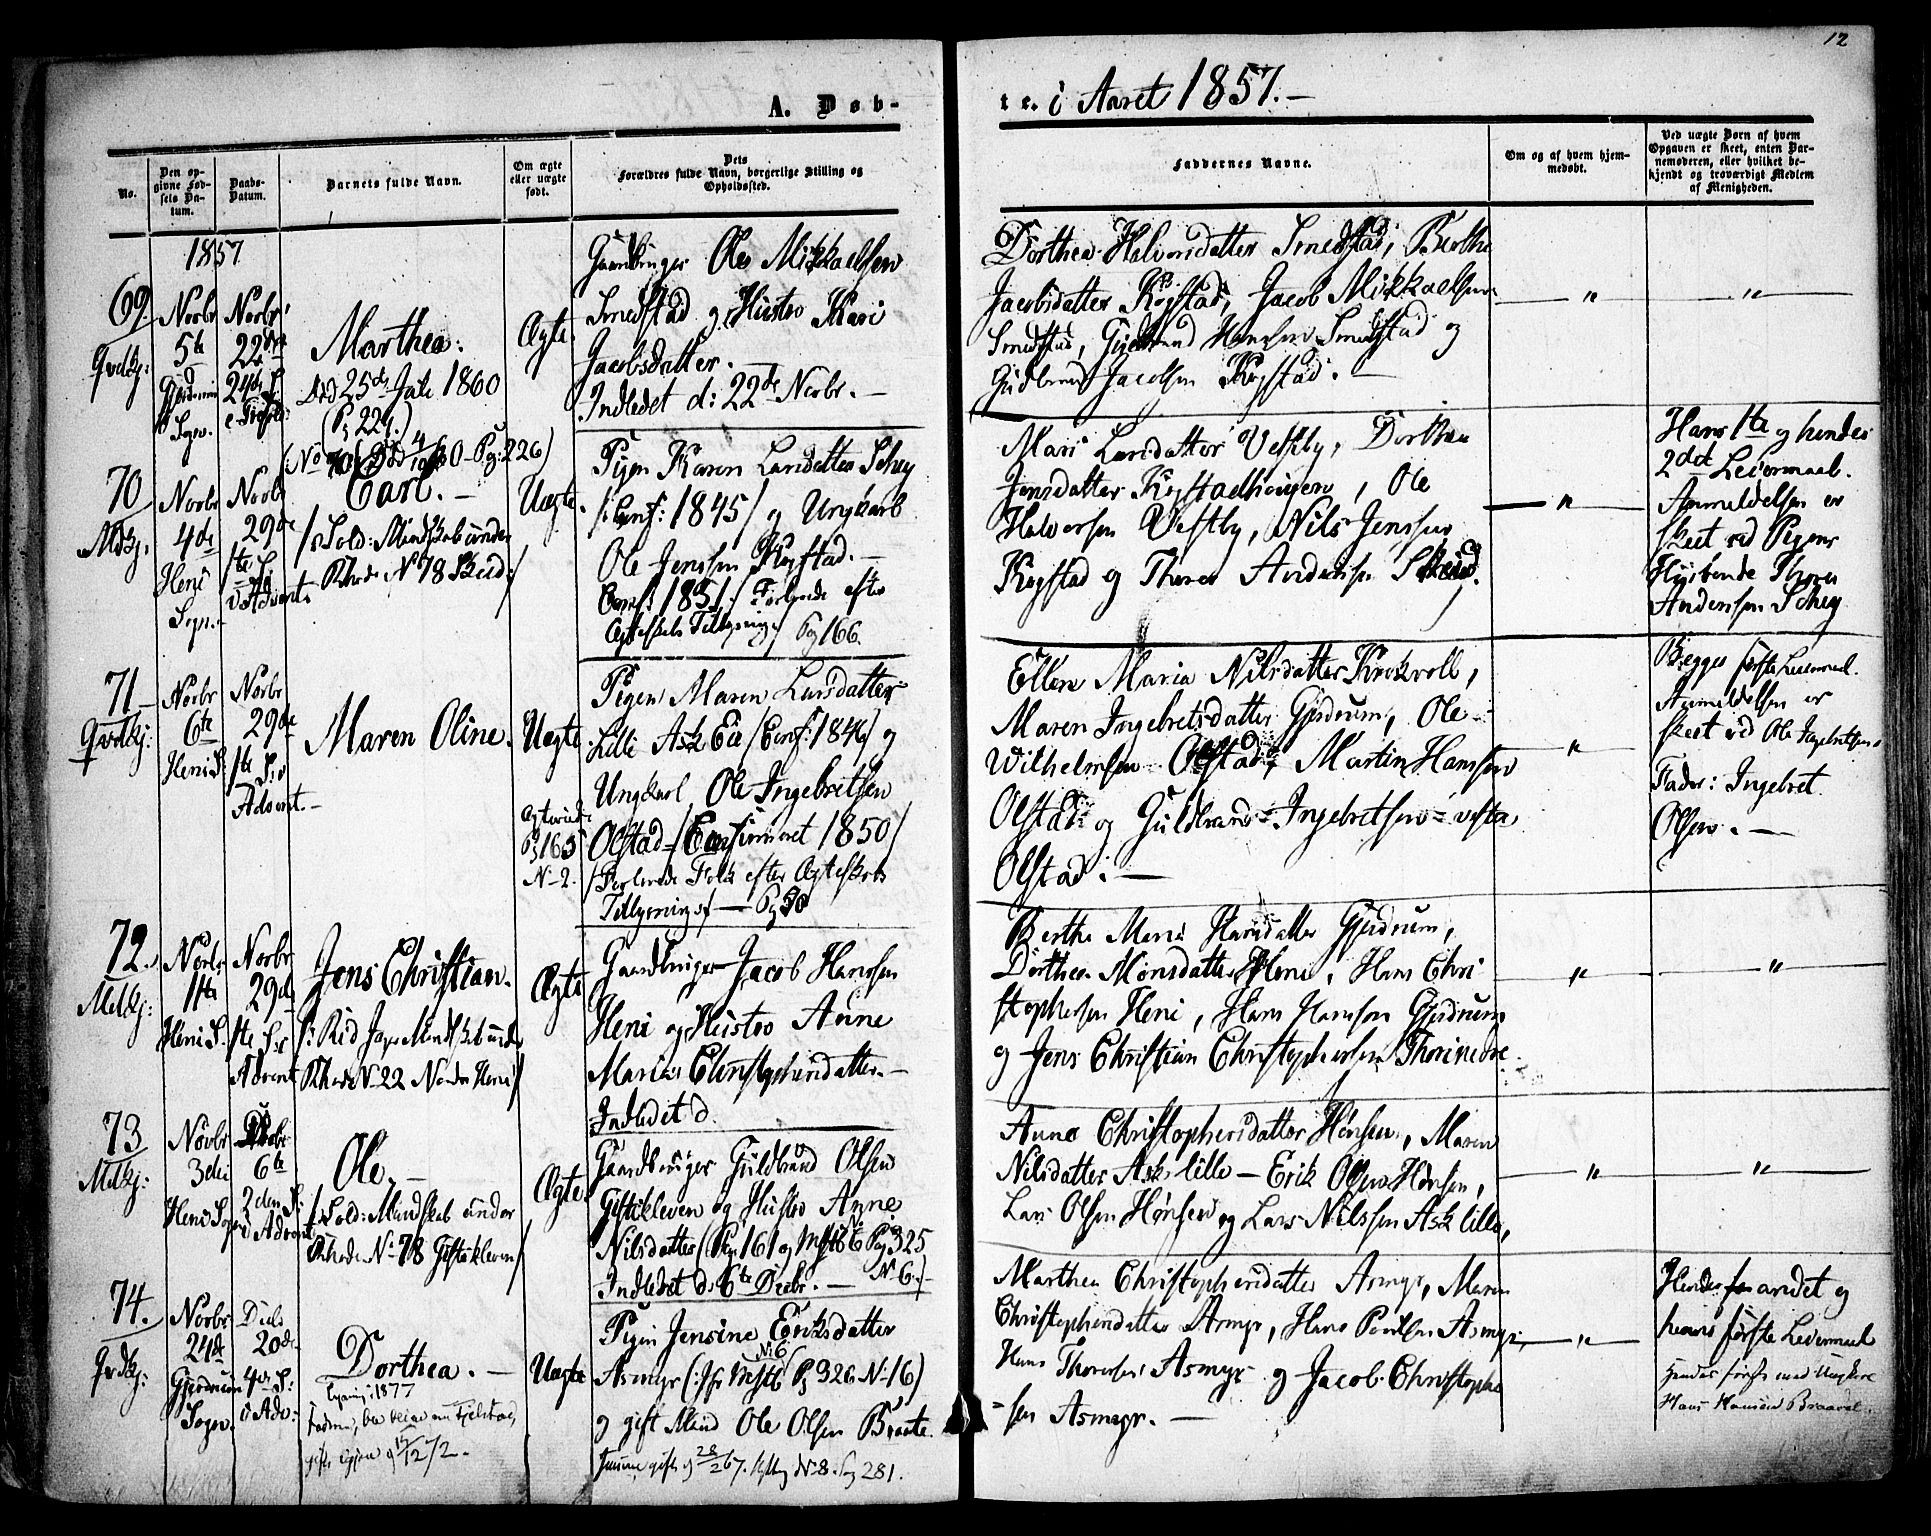 12
A. Døb-
te. i Aaret 1857.-
No.
Den op-
givne Fød-
sels Da-
tum.
Daabs-
Datum.
Barnets fulde Navn.
Om ægte
eller uægte
født.
Dets
Forældres fulde Navn, borgerlige Stilling og
Opholdssted.
Faddernes Navne.
Om og af hvem hjem-
medøbt.
Ved uægte Børn af hvem
Opgaven er skeet, enten Bar-
nemoderen, eller hvilket be-
kjendt og troværdigt Medlem
af Menigheden.
1857
69.
Qvdkj:
Novbr
5te
Gjerdrum
Sogn.
Novbr
22de
24de S.
Marthea.
Død 25de Juli 1860
(Pg 229.)
Ægte.
Gaardbruger Ole Mikkaelsen
Smedstad og Hustro Kari
Jacobsdatter. —
Indledet d: 22de Novbr. —
Dorthea Halvorsdatter Smedstad, Berthe
Jacobsdatter Kogstad, Jacob Mikkaelsen
Smedstad, Gudbrand Hansen Smedstad og
Gudbrand Jacobsen Kogstad. —
— " —
— " —
70
Mdkj.
Novbr
4de
Heni
Sogn.
Novbr
29de
1te S.
i Advent.
Carl. —
/: Sold: Mandskab under
Rhode N 78 Skud:/
Uægte.
Pigen Karen Larsdatter Schey
/: Conf: 1845/ og Ungkarl
Ole Jenssen Kogstad. —
Conf: 1851:/ Forlovede efter
Ægteskabs Tillysning / Pg 166.
Mari Larsdatter Vestby, Dorthea
Jensdatter Kogstadhaugen, Ole
Halvorsen Vestby, Nils Jenssen
Kogstad og Thorer Andersen Skeid.
— " —
Hans 1te og hendes
2det Leiermaal.
Anmeldelsen er
skeet ved Pigens
Husbonde Thorer
Andersen Schey
71
Qvdkj:
Novbr
6te
Heni S.
Novbr
29de
1te S. i
Advent. —
Maren Oline.
Uægte
Pg 165
N-2.
Pigen Maren Larsdatter
Lille Ask Eie /Conf: 1846/ og
Ungkarl Ole Ingebretsen
Olstad /Confirmeret 1850/
/Forlovede Folk efter Ægteskabs
Tillysning:/ — Pg
Ellen Maria Nilsdatter Krokvoll,
Maren Ingebretsdatter Gjerdrum, Ole
Wilhelmsen Olstad, Martin Hansen
Olstad og Guldbrand Ingebretsen vestre
Olstad. —
— " —
Begges første Leiermaal.
Anmeldelsen er
skeet ved Ole Ingebretsens
Fader: Ingebret
Olsen. —
72.
Mdkj:
Novbr
11te
Heni S.
Novbr
29de
1te S. i
Advent
Jens Christian.
/: Rid Jæger Mandskab under
Rhode N-22 Nordre Heni/
Ægte
Gaardbruger Jacob Hanssen
Heni og Hustro Anne
Marie Christophersdatter. —
Indledet d.
Berthe Marie Hansdatter Gjerdrum,
Dorthea Monsdatter Heni, Hans Chri
stophersen Heni, Hans Hansen Gjerdrum
og Jens Christian Christophersen Thorinedre.
— " —
— " —
73
Mdkj:
Novbr
3die
Heni Sogn
6te
2den S:
i Advent
Ole. —
/: Sold: Mandskab under
Rhode N-78 Gistekleven/
Ægte.
Gaardbruger Guldbrand Olsen
Gistekleven og Hustro Anne
Nilsdatter (Pg. 161 og Mstb 6 Pg 325
N-6.)
Indledet d. 6te Decbr. —
Anne Christophersdatter Hønsen, Maren
Nilsdatter Ask lille — Erik Olsen Hønsen,
Lars Olsen Hønsen og Lars Nilssen Ask lille,
— " —
— " —
74.
Qvdkj:
Novbr
24de
Gjerdrum
Sogn.
20de
4de S:
i Adv:
Dorthea. —
1877
Uægte
Pigen Jensine Eriksdatter
Asmyr (: Mstb N:6 Pg 326 N:16)
og gift Mand Ole Olsen Braate.
Jensine gift 28/2 67. N-8. Pg 281.
Marthea Christophersdatter Asmyr, Maren
Christophersdatter Asmyr, Hans Poulsen Asmyr,
Hans Thoresen Asmyr og Jacob Christophe
-sen Asmyr. —
— " —
Hendes andet og
hans første Leiermaal
hendes første med Ungkarl
Hans Hansen